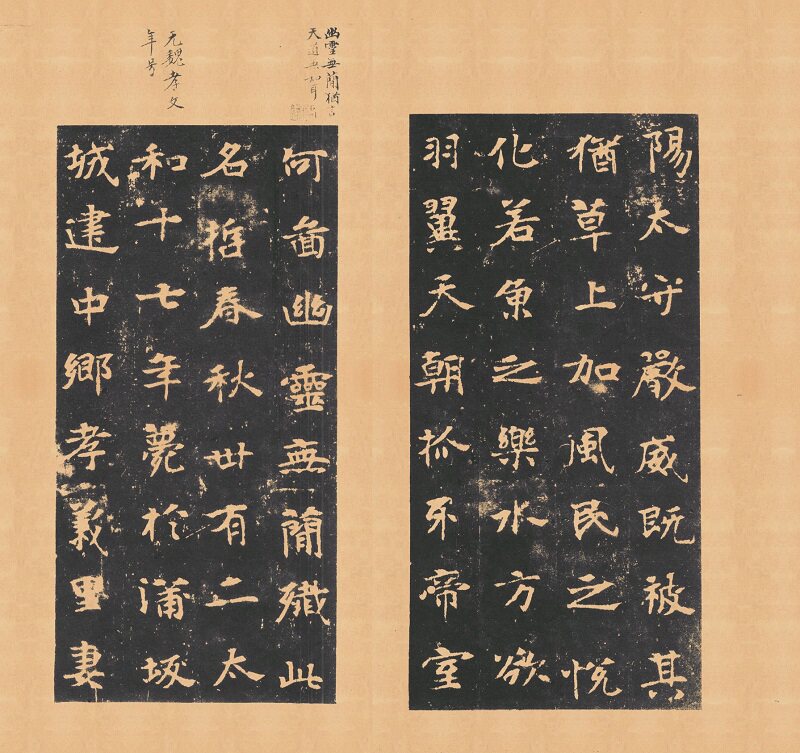 陽太守嚴威既被其
猶草上加風民之悅
化若魚之樂水方欲
羽翼天朝抓牙帝室
幽靈無蕑猶言
天道無知耳
何啚幽靈無蕑殲此
名哲春秋卅有二太
和十七年薨於蒲坂
城建中鄉孝義里妻
元魏孝文
年号